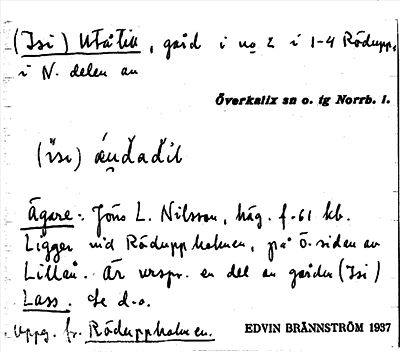 (Isi) Utåtill, gård i no 2 i 1-4 Rödupp,
i N. delen av
Överkalix sn o. tg Norrb. l.
(ïsɩ)
Ägare: Jöns L. Nilsson, häg. f. 61 kb.
Ligger vid Röduppholmen, på Ö. sidan av
Lillån. Är urspr. en del av gården (Isi)
Lass. Se d.o.
Uppg. fr. Röduppholmen.
EDVIN BRÄNNSTRÖM 1937